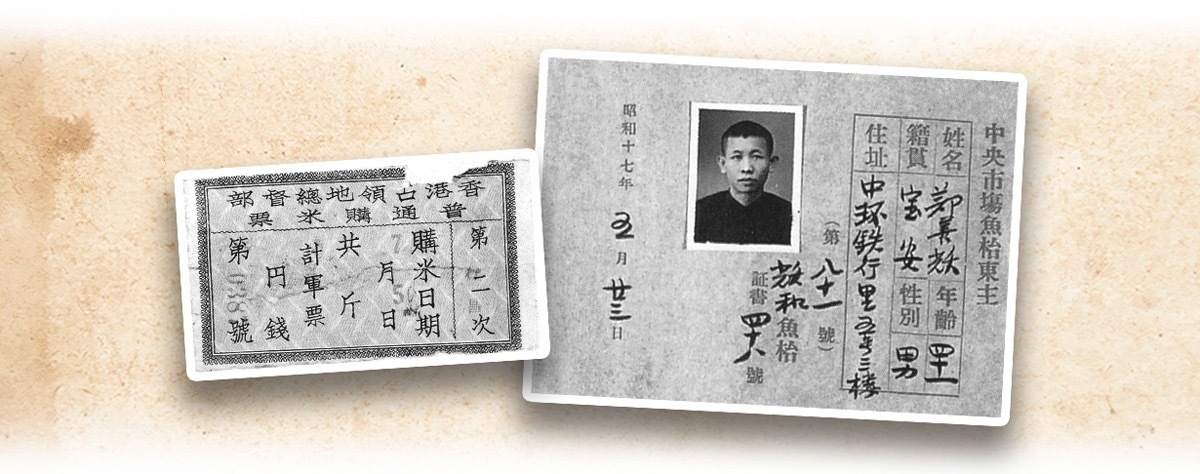 香港占領地總督部
普通購米票
第二次
購米日期
7月日
共斤
計軍票
円錢
第號
中央市塲魚枱東主
姓名 鄭善 年齡 四一
籍貫 宝安 性別 男
住址 中环鉄行里五号三楼
（第八十一號）
和魚枱
証書號
昭和十七年五月廿三日